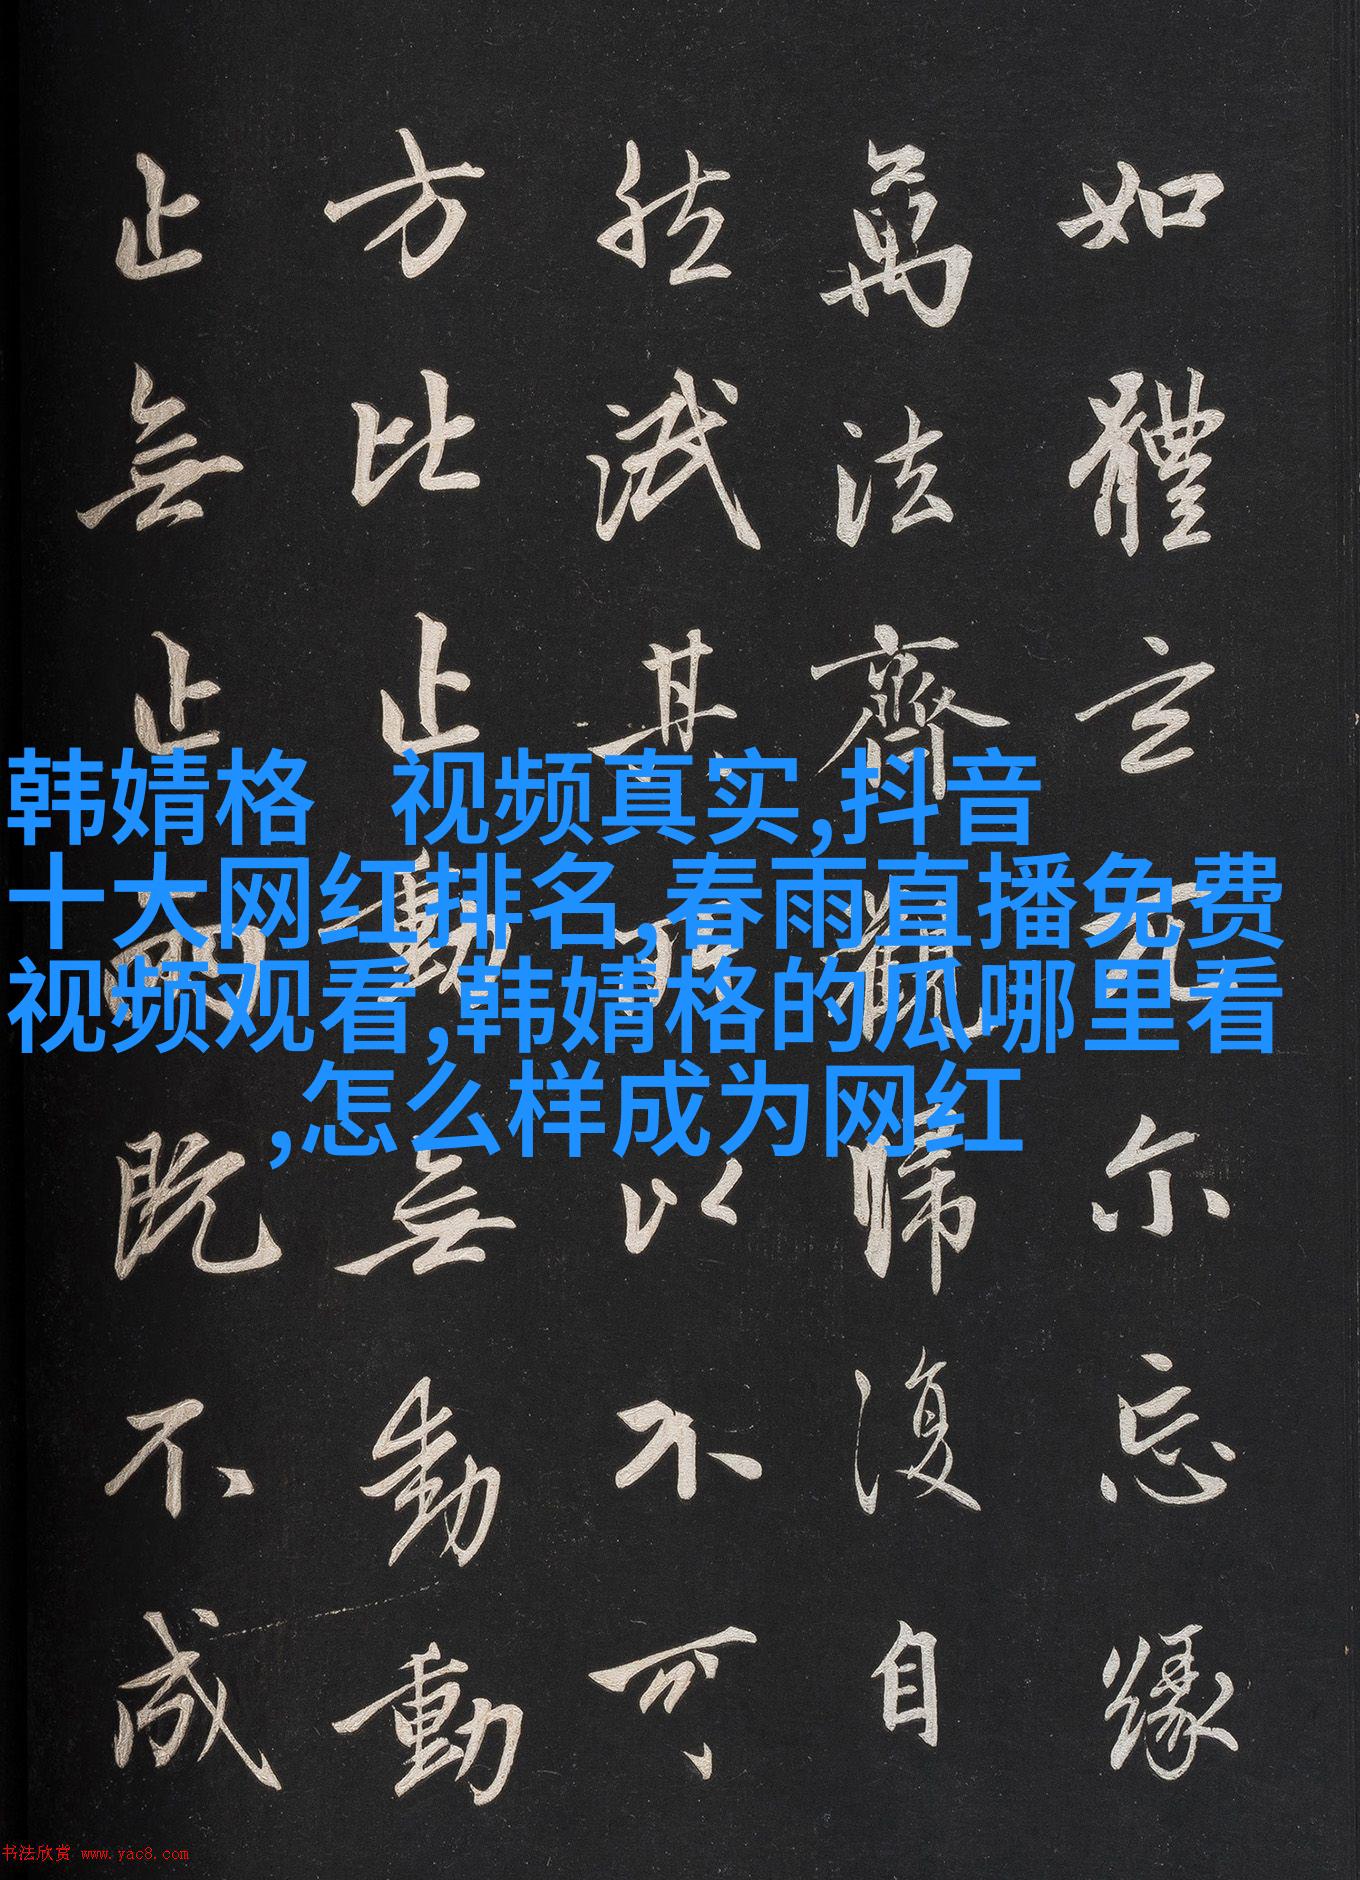 如體玄兀尔忘緣
萬法齊觀歸復自
然泯其所以不可
方比止動無動動
止無止兩既不成
韩婧格 视频真实,抖音
十大网红排名,春雨直播免费
视频观看,韩婧格的瓜哪里看
,怎么样成为网红
书法欣赏 www.yac8.com